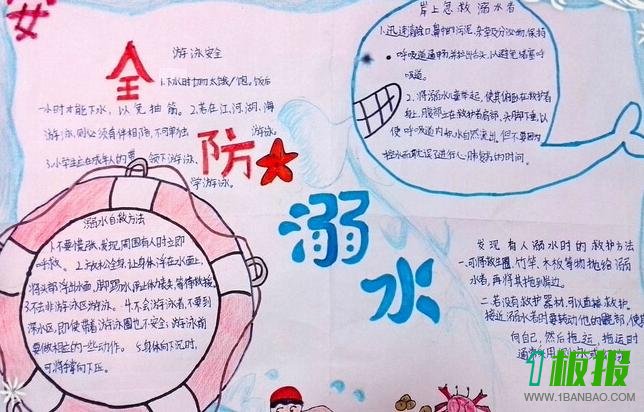 安
全
防
溺
水
游泳安全
1.下水时切勿太饿/饱。饭后
一小时才能下水，以免抽筋。2.若在江、河、湖、海
游泳，则必须有伴相陪，不可单独游泳。
3.小学生应在成年人的带领下游泳、
学游泳。
岸上急救溺水者
1.迅速清除口、鼻中的污泥、杂草及分泌物，保持
呼吸道通畅，并拉出舌头，以避免堵塞呼
吸道。
2.将溺水儿童举起，使其俯卧在救护者
肩上，腹部
头脚下垂，以
使呼吸道内积水自然流出。但不要因为
控水而耽误了进行心肺复苏的时间。
溺水自救方法
1.不要慌张，发现周围有人时立即
呼救。2.放松全身，让身体浮在水面上，
将头部浮出水面，脚踢水，防止体力丧失，等待救援。
3.不去非游泳区游泳。4.不会游泳者，不要到
深水区，即使带着游泳圈也不安全，游泳前
要做相应的一些动作。5.身体向下沉时，
可将掌向下压。
发现有人溺水时的救护方法
一.可将救生圈、竹竿、木板等物抛给溺
水者，再将其拖到岸边。
二.若没有救护器材，可以直接救护。
接近溺水者时要转动他的髋部，使其
向自己，然后拖运，拖运时
通常采用
1板报
WWW.1BANBAO.COM